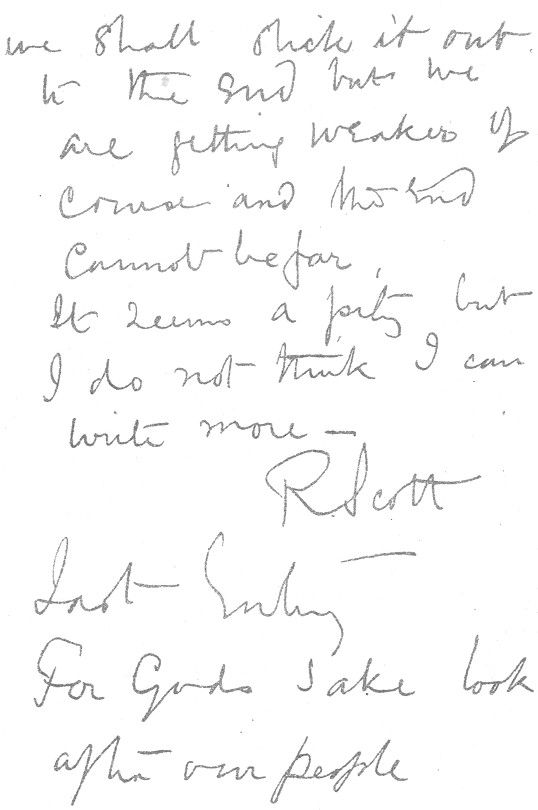 we shall stick it out
to the End but we
are getting weaker of
course and the End
cannot be far.
It seems a pity but
I do not think I can
write more —
R. Scott
Last Entry
For Gods sake look
after our people